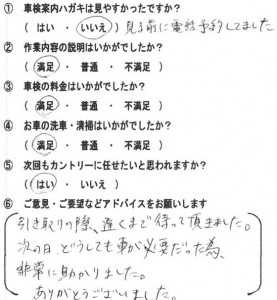 ① 車検案内ハガキは見やすかったですか？
( はい ・ いいえ ) 見る前に電話予約してました
② 作業内容の説明はいかがでしたか？
( 満足 ・ 普通 ・ 不満足 )
③ 車検の料金はいかがでしたか？
( 満足 ・ 普通 ・ 不満足 )
④ お車の洗車・清掃はいかがでしたか？
( 満足 ・ 普通 ・ 不満足 )
⑤ 次回もカントリーに任せたいと思われますか？
( はい ・ いいえ )
⑥ ご意見・ご要望などアドバイスをお願いします
引き取りの際、遅くまで待って頂きました。
次の日、どうしても車が必要だった為、
非常に助かりました。
ありがとうございました。